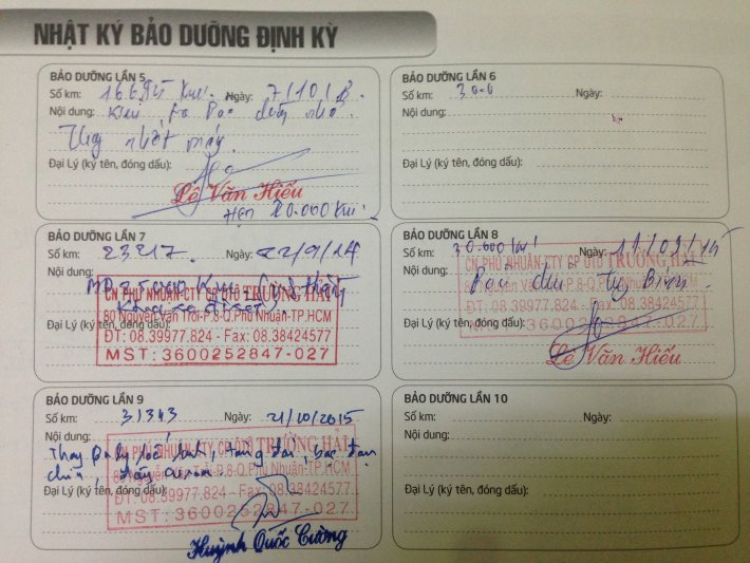 NHẬT KÝ BẢO DƯỠNG ĐỊNH KỲ
BẢO DƯỠNG LẦN 5
Số km: Ngày:
Nội dung:
Thay nhớt máy.
Đại Lý (ký tên, đóng dấu):
Lê Văn Hiếu
Hẹn 20.000 Km
BẢO DƯỠNG LẦN 6
Số km: Ngày:
Nội dung:
Đại Lý (ký tên, đóng dấu):
BẢO DƯỠNG LẦN 7
Số km: 23217. Ngày: 22/9/14
Nội dung:
CN PHÚ NHUẬN-CTY CP ÔTÔ TRƯỜNG HẢI
80 Nguyễn Văn Trỗi-P.8-Q.Phú Nhuận-TP.HCM
Đại Lý (ký tên, đóng dấu):
ĐT: 08.39977.824 - Fax: 08.38424577
MST: 3600252847-027
BẢO DƯỠNG LẦN 8
Số km: 30.000 km Ngày:
CN PHÚ NHUẬN-CTY CP ÔTÔ TRƯỜNG HẢI
Nội dung:
ĐT: 08.39977.824 - Fax: 08.38424577
Đại Lý (ký tên, đóng dấu):
3600252847-027
Lê Văn Hiếu
BẢO DƯỠNG LẦN 9
Số km: 31343 Ngày: 21/10/2015
Nội dung:
CN PHÚ NHUẬN-CTY CP ÔTÔ TRƯỜNG HẢI
Thay
P.8-Q.Phú Nhuận-TP.HCM
Đại Lý (ký tên, đóng dấu):
ĐT: 08.39977.824 - Fax: 08.38424577
MST: 3600252847-027
Huỳnh Quốc Cường
BẢO DƯỠNG LẦN 10
Số km: Ngày:
Nội dung:
Đại Lý (ký tên, đóng dấu):